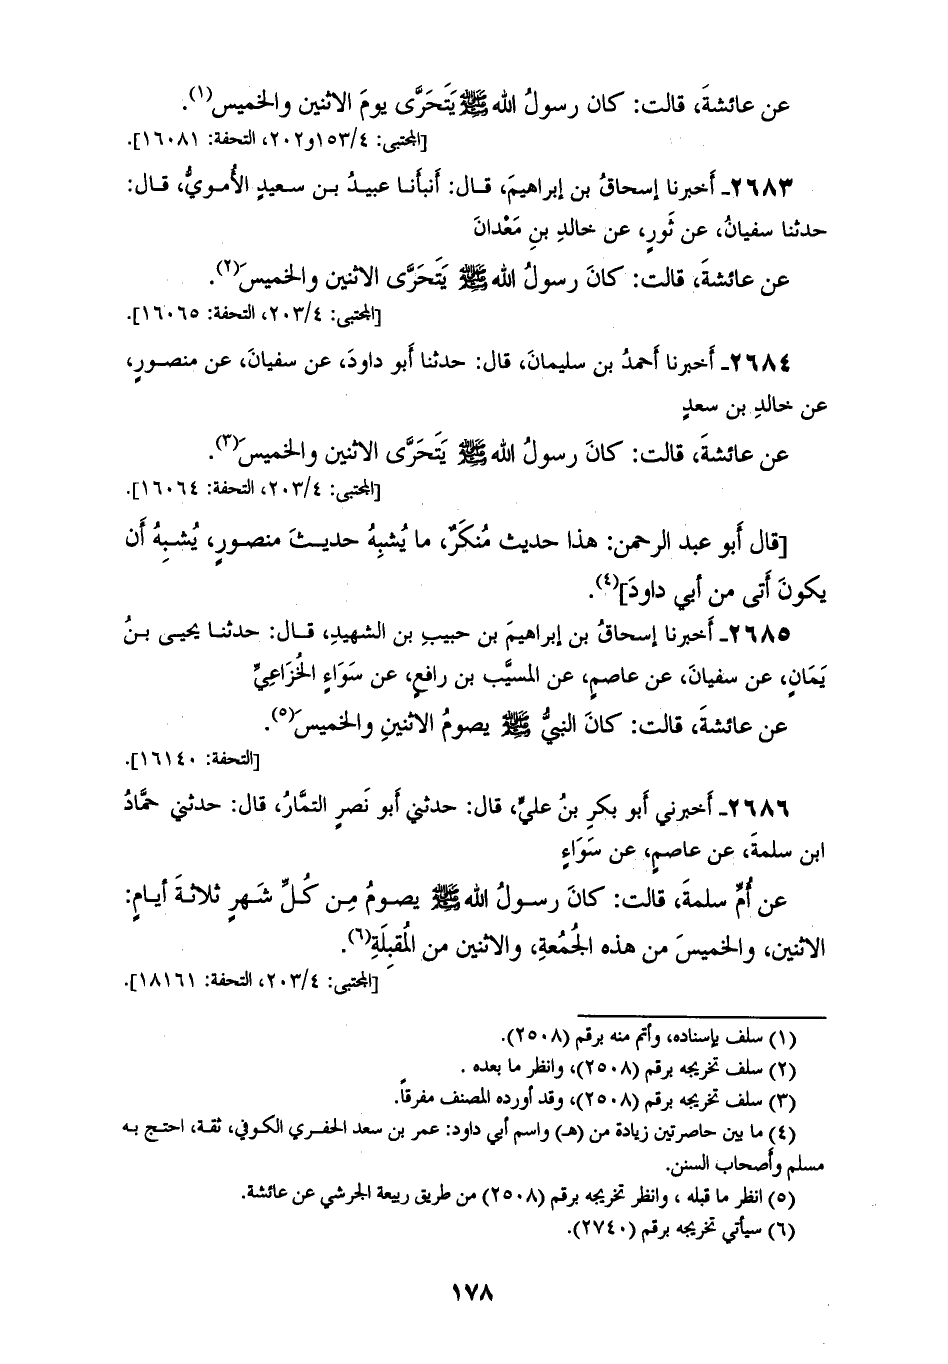 عن عائشةَ، قالت: كان رسولُ الله ﷺ يَتَحَرَّى يومَ الاثنين والخميس(١).
[المجتبى: ١٥٣/٤و٢٠٢، التحفة: ١٦٠٨١].
٢٦٨٣ـ أَخبرنا إسحاقُ بن إبراهيمَ، قال: أَنبأنا عبيدُ بن سعيدٍ الأُمويُّ، قال:
حدثنا سفيانُ، عن ثَورٍ، عن خالدِ بنِ مَعْدانَ
عن عائشةَ، قالت: كانَ رسولُ الله ﷺ يَتَحَرَّى الاثنين والخميسَ(٢).
[المجتبى: ٢٠٣/٤، التحفة: ١٦٠٦٥].
٢٦٨٤ـ أَخبرنا أَحمدُ بن سليمانَ، قال: حدثنا أَبو داودَ، عن سفيانَ، عن منصورٍ،
عن خالدِ بن سعدٍ
عن عائشةَ، قالت: كانَ رسولُ الله ﷺ يَتَحَرَّى الاثنين والخميسَ(٣).
[المجتبى: ٢٠٣/٤، التحفة: ١٦٠٦٤].
[قال أَبو عبد الرحمن: هذا حديث مُنكَرٌ، ما يُشبِهُ حديثَ منصورٍ، يُشبِهُ أَن
يكونَ أَتى من أبي داودَ](٤).
٢٦٨٥ـ أَخبرنا إسحاقُ بن إبراهيمَ بن حبيبِ بن الشهيدِ، قال: حدثنا يحيى بنُ
يَمَانٍ، عن سفيانَ، عن عاصمٍ، عن المسيَّب بن رافعٍ، عن سَوَاءٍ الخُزَاعِيِّ
عن عائشةَ، قالت: كانَ النبيُّ ﷺ يصومُ الاثنينِ والخميسَ(٥).
[التحفة: ١٦١٤٠].
٢٦٨٦ـ أَخبرني أَبو بكرِ بنُ عليٍّ، قال: حدثني أَبو نَصرٍ التمَّارُ، قال: حدثني حمَّادُ
ابن سلمةَ، عن عاصمٍ، عن سَوَاءٍ
عن أُمِّ سلمةَ، قالت: كانَ رسولُ الله ﷺ يصومُ مِن كُلِّ شَهرٍ ثلاثةَ أيامٍ:
الاثنين، والخميسَ من هذه الجُمُعةِ، والاثنين من المُقبِلَةِ(٦).
[المجتبى: ٢٠٣/٤، التحفة: ١٨١٦١].
(١) سلف بإسناده، وأتم منه برقم (٢٥٠٨).
(٢) سلف تخريجه برقم (٢٥٠٨)، وانظر ما بعده .
(٣) سلف تخريجه برقم (٢٥٠٨)، وقد أورده المصنف مفرقاً.
(٤) ما بين حاصرتين زيادة من (هـ) واسم أبي داود: عمر بن سعد الحفري الكوفي، ثقة، احتج به
مسلم وأصحاب السنن.
(٥) انظر ما قبله ، وانظر تخريجه برقم (٢٥٠٨) من طريق ربيعة الجرشي عن عائشة.
(٦) سيأتي تخريجه برقم (٢٧٤٠).
١٧٨